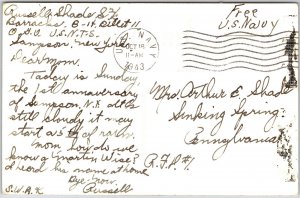 Russell Shade S2/c
Barracks B-11, Dilto 11
O.G.U. U.S.N.T.S.
Sampson, New York
Dear Mom,
Today is Sunday,
the 1st anniversary
of Sampson, N.Y. altho
still cloudy it may
start as of rain.
Mom, how do we
know a Martin Wise?
I read his name at one
Bye now
S.W.A.K Russell
Free
U.S. Navy
U.S. NAVY
OCT 18
11-AM
1943
Mrs. Arthur E. Shade
Sinking Spring,
Pennsylvania
R.F.D. #1